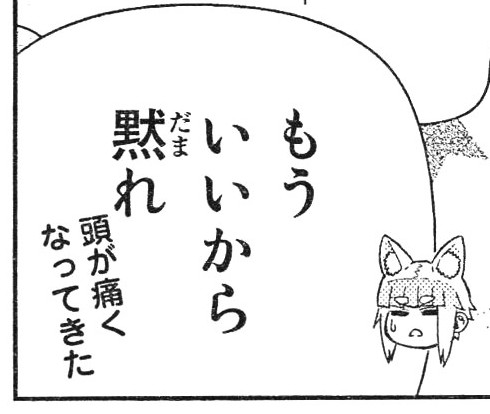 もう
いいから
黙れ
だま
頭が痛く
なってきた